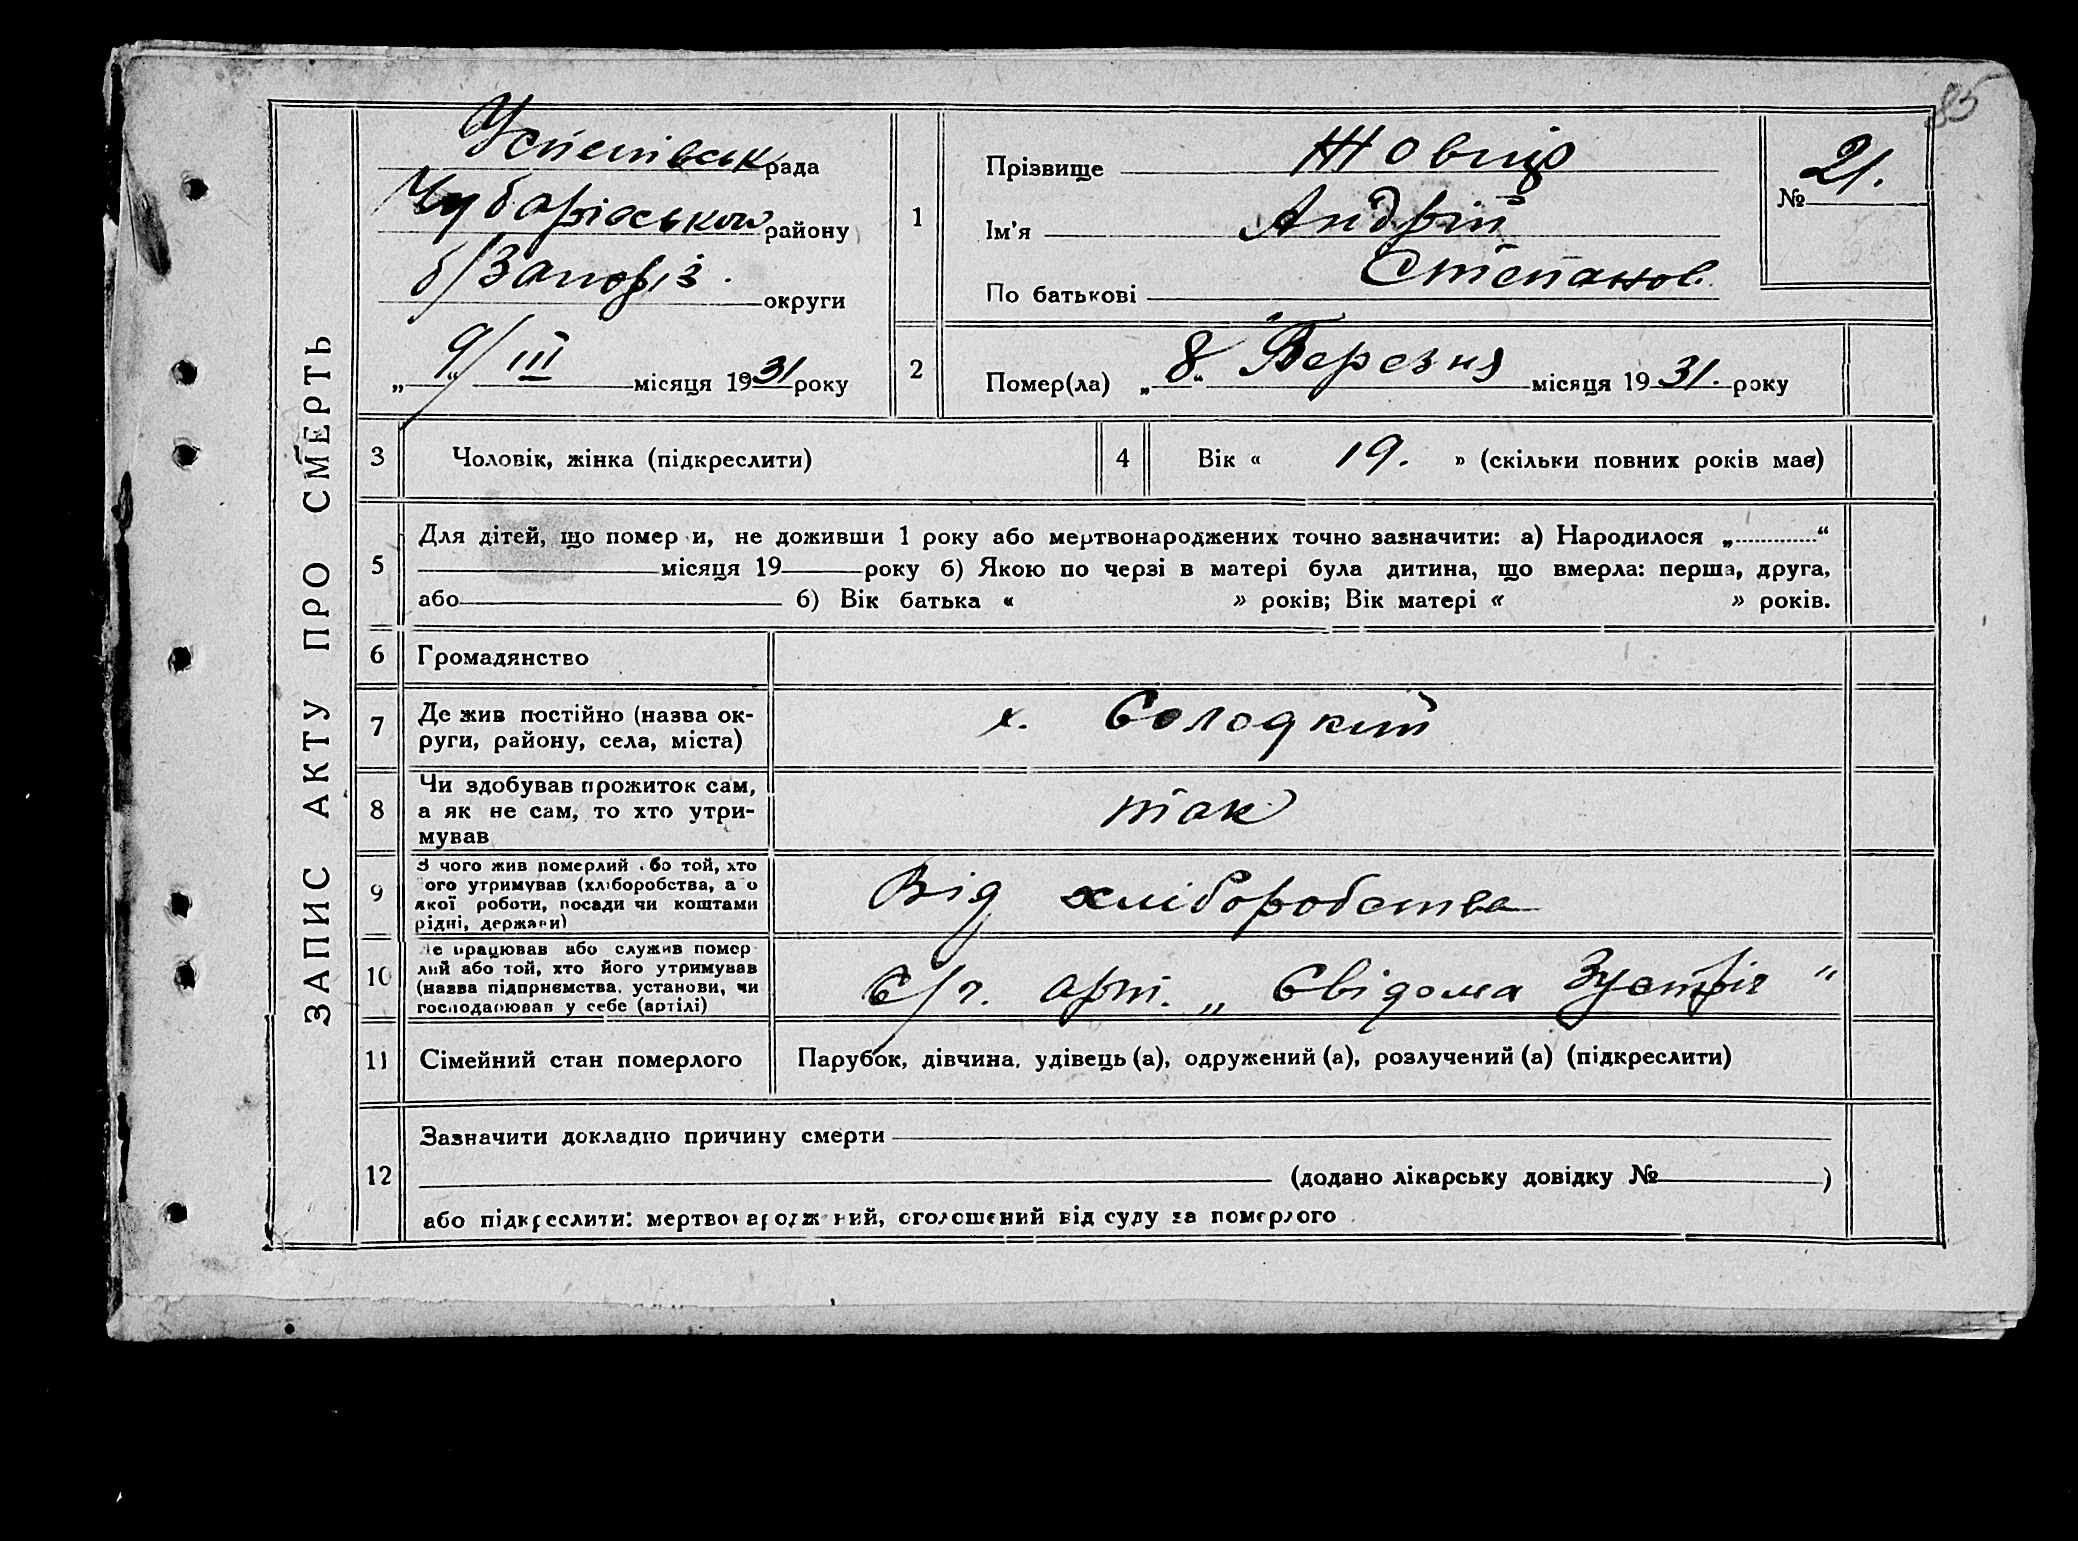 85
ЗАПИС АКТУ ПРО СМЕРТЬ
Успенівськ рада
Чубарівського району
б/Запоріз. округи
„9“ III місяця 1931 року
1
Прізвище
Ім'я Андрій
По батькові Степанов.
№ 21.
2
Помер(ла) „8“ Березня місяця 1931. року
3 Чоловік, жінка (підкреслити)
4 Вік « 19. » (скільки повних років має)
5
Для дітей, що помер и, не доживши 1 року або мертвонароджених точно зазначити: а) Народилося „ “
місяця 19 року б) Якою по черзі в матері була дитина, що вмерла: перша, друга,
або б) Вік батька « » років; Вік матері « » років.
6 Громадянство
7 Де жив постійно (назва ок-
руги, району, села, міста)
х. Солодкий
8 Чи здобував прожиток сам,
а як не сам, то хто утри-
мував
так
9 З чого жив померлий або той, хто
ого утримував (хліборобства, а о
якої роботи, посади чи коштами
рідні, держави)
Від хліборобства
10 е працював або служив помер
лий або той, хто його утримував
(назва підприємства, установи, чи
господарював у себе (артілі)
С/г. арт. „Свідома Зустріч“
11 Сімейний стан померлого
Парубок, дівчина, удівець (а), одружений (а), розлучений (а) (підкреслити)
12
Зазначити докладно причину смерти
(додано лікарську довідку № )
або підкреслити: мертвонароджений, оголошений від суду за померлого